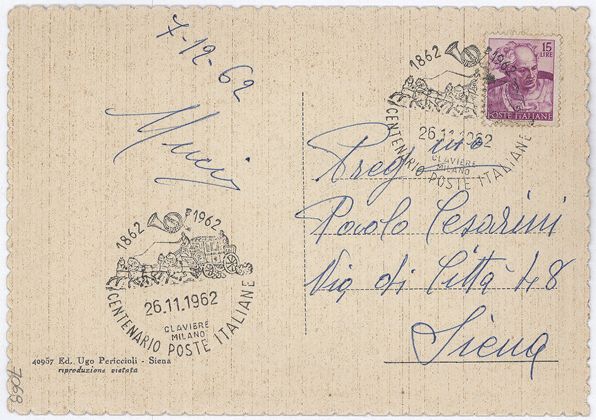 7-12-62
1862 1962
26.11.1962
CLAVIERE
MILANO
CENTENARIO POSTE ITALIANE
40957 Ed. Ugo Periccioli - Siena
riproduzione vietata
7068
15
LIRE
POSTE ITALIANE
1862 1962
26.11.1962
CLAVIERE
MILANO
CENTENARIO POSTE ITALIANE
Preg.mo
Paolo Cesarini
Via di Città 48
Siena